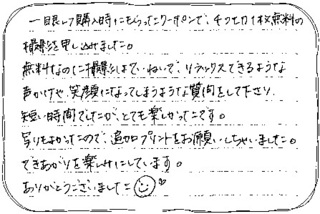 一眼レフ購入時にもらったクーポンで、チフセカ1枚無料の
撮影を申し込みました。
無料なのに撮影はていねいで、リラックスできるような
声かけや、笑顔になってしまうような質問をして下さり、
短い時間でしたが、とても楽しかったです。
写りもよかったので、追加プリントをお願いしちゃいました。
できあがりを楽しみにしています。
ありがとうございました